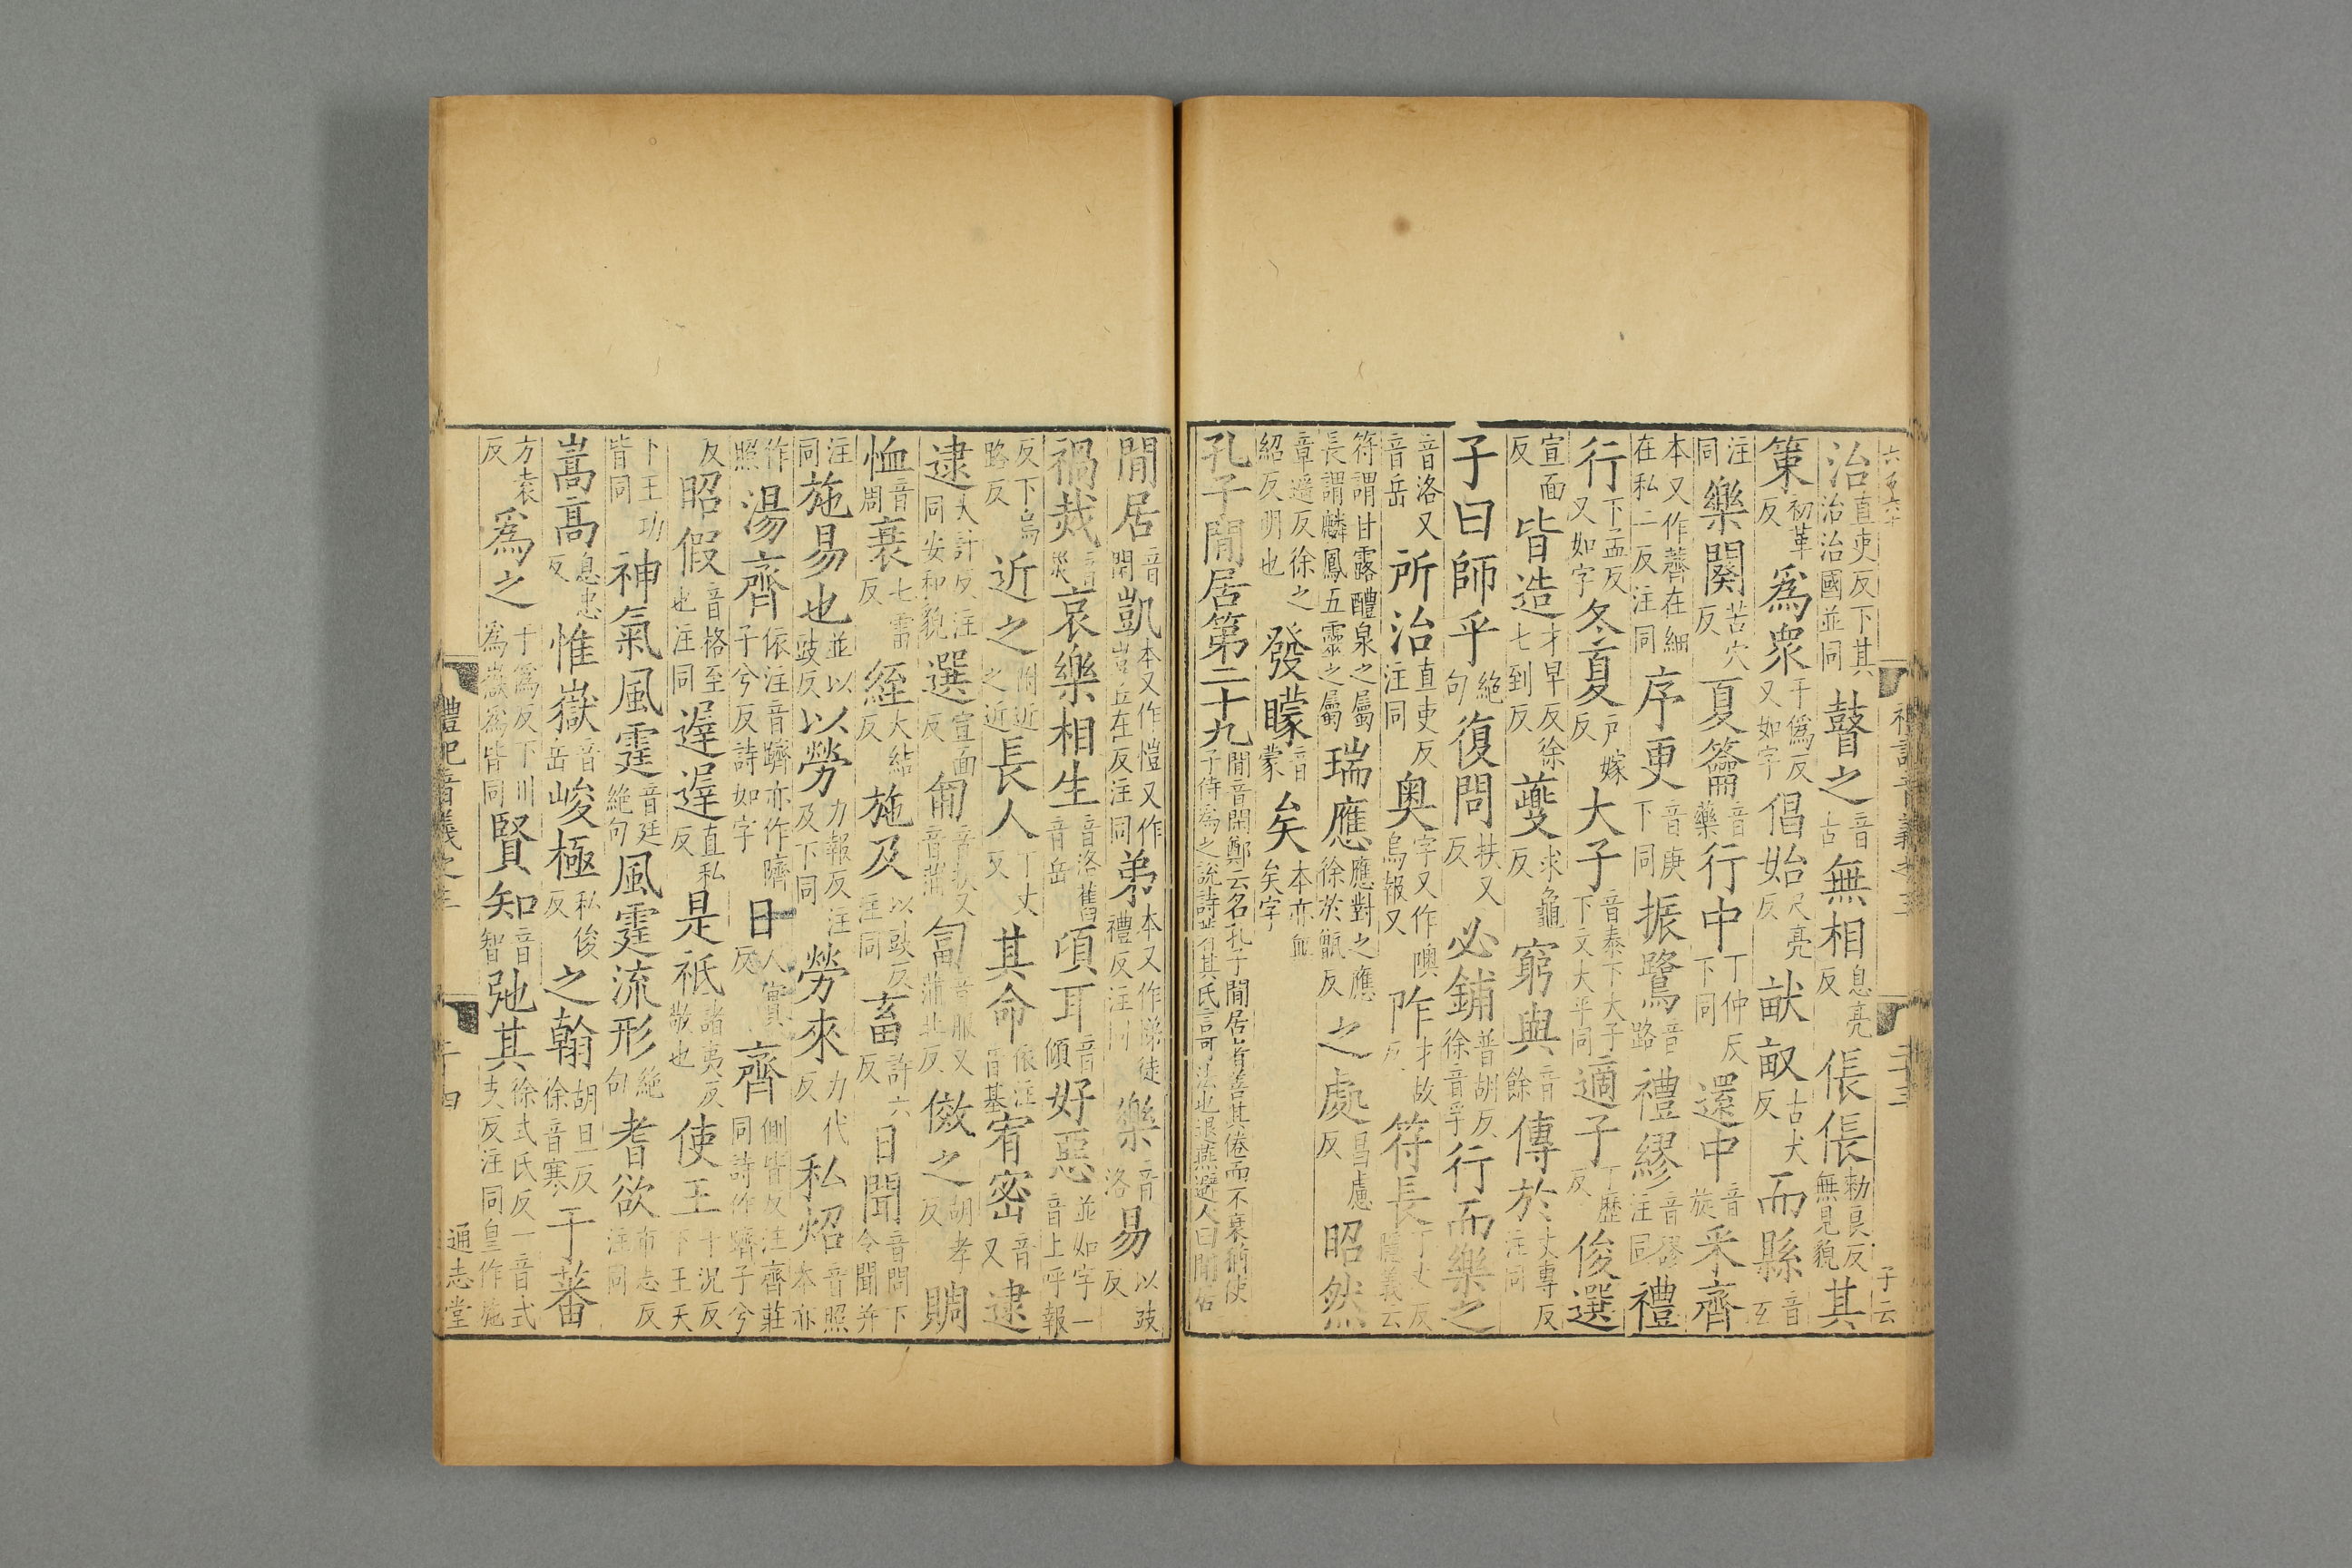 治直吏反下其治治國並同瞽之音古無相息亮反倀倀勑良反無見貌其
策初革反爲衆于僞反又如字倡始尺亮反猷畎古犬反而縣音玄
注同樂闋苦穴反夏籥音藥行中丁仲反下同還中音旋釆齊
本又作薺在細在私二反注同序更音庚下同振鷺音路禮繆音謬注同禮
行下孟反又如字冬夏戸嫁反大子音泰下大子下文大平同適子丁歷反俊選
宣面反皆造才早反徐七到反夔求龜反窮與音餘傳於丈專反注同
子曰師乎絶句復問扶又反必鋪普胡反徐音孚行而樂之
音洛又音岳所治直吏反注同奧字又作隩烏報又阼才故反符長丁丈反隱義云
符謂甘露醴泉之屬長謂麟鳳五靈之屬瑞應應對之應徐於甑反之處昌慮反昭然
章遥反徐之紹反明也發矇音蒙矣本亦無矣字
孔子閒居第二十九閒音閑鄭云名孔子閒居者善其倦而不褻猶使一子侍爲之說詩著其氏言可法也退燕避人曰閒居
閒居音閑凱本又作愷又作豈丘在反注同弟本又作悌徒禮反注同樂音洛易以豉反
禍烖音災哀樂相生音洛舊音岳頃耳音傾好惡並如字一音上呼報
反下烏路反近之附近之近長人丁丈反其命依注音基宥密音又逮
逮大計反注同安和貌選宣面反匍音扶又音蒲匐音服又蒲北反傚之胡孝反賙
恤音周衰七雷反絰大結反施及以豉反注同畜許六反日聞音問下令聞并
注同施易也並以豉反以勞力報反注及下同勞來力代反私炤音照本亦
作照湯齊依注音躋亦作隮子兮反詩如字日人實反齊側皆反注齊莊同詩作躋子兮
反昭假音格至也注同遟遟直私反是祇諸夷反敬也使王于況反下王天
下王功皆同神氣風霆音廷絶句風霆流形絶句耆欲市志反注同
嵩高息忠反惟嶽音岳峻極私俊反之翰胡旦反徐音寒于蕃
方袁反爲之于爲反下川爲嶽爲皆同賢知音智弛其徐式氏反一音式支反注同皇作施
禮記音義之三
通志堂